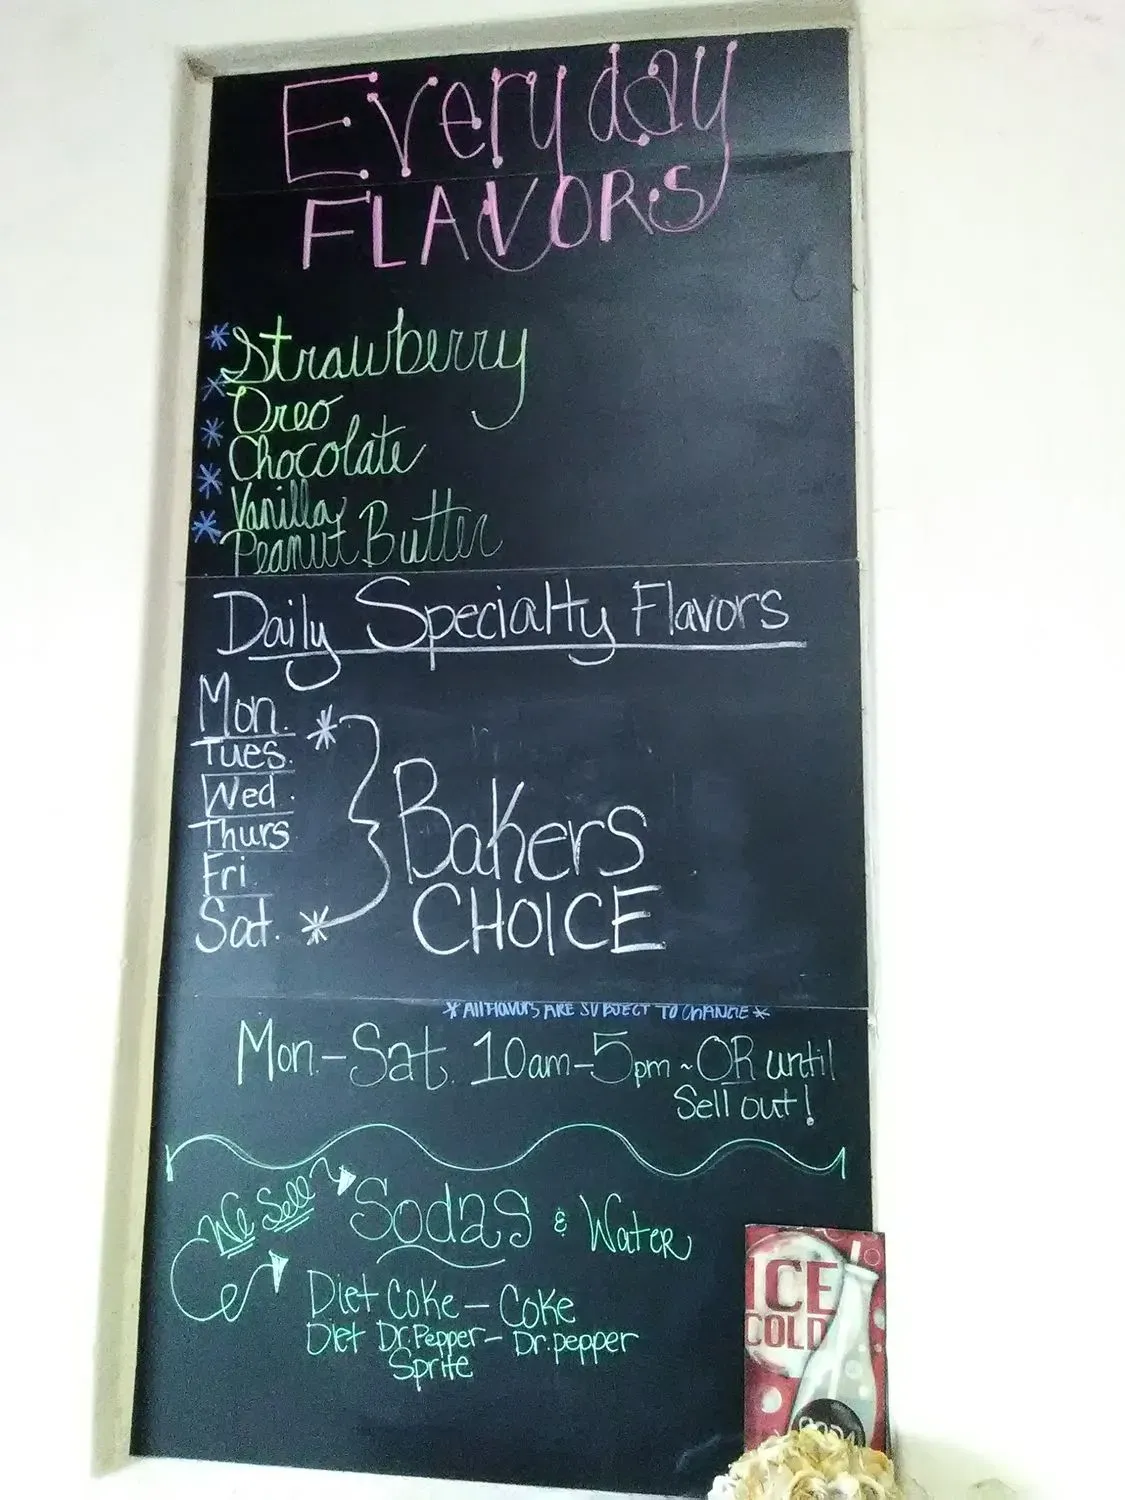 Everyday
FLAVORS
* Strawberry
* Oreo
* Chocolate
* Vanilla
* Peanut Butter
Daily Specialty Flavors
Mon.
Tues.
Wed.
Thurs
Fri
Sat.
Bakers
CHOICE
* All Flavors ARE SUBJECT TO CHANGE *
Mon.-Sat. 10am-5pm ~ OR until
Sell out!
We Sell
Sodas & Water
Diet Coke - Coke
Diet Dr. Pepper - Dr. pepper
Sprite
ICE
COLD
SODA